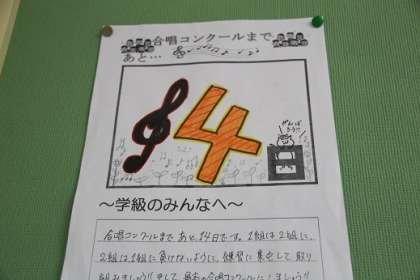 合唱コンクールまで
あと…
14
がんばろう!!
〜学級のみんなへ〜
合唱コンクールまであと、14日です。1組は2組に、
2組は1組に負けないように、練習に集中して取り
組みましょう!!そして、最高の合唱コンクールにしましょう!!